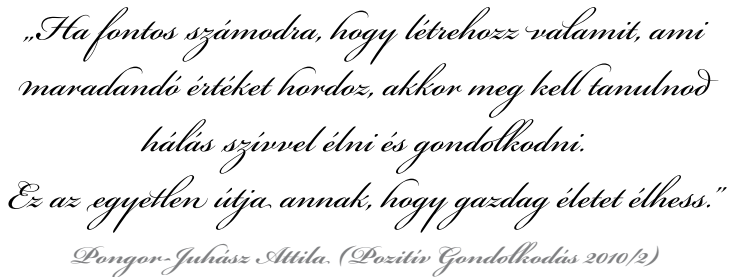 „Ha fontos számodra, hogy létrehozz valamit, ami
maradandó értéket hordoz, akkor meg kell tanulnod
hálás szívvel élni és gondolkodni.
Ez az egyetlen útja annak, hogy gazdag életet élhess.”
Pongor-Juhász Attila (Pozitív Gondolkodás 2010/2)